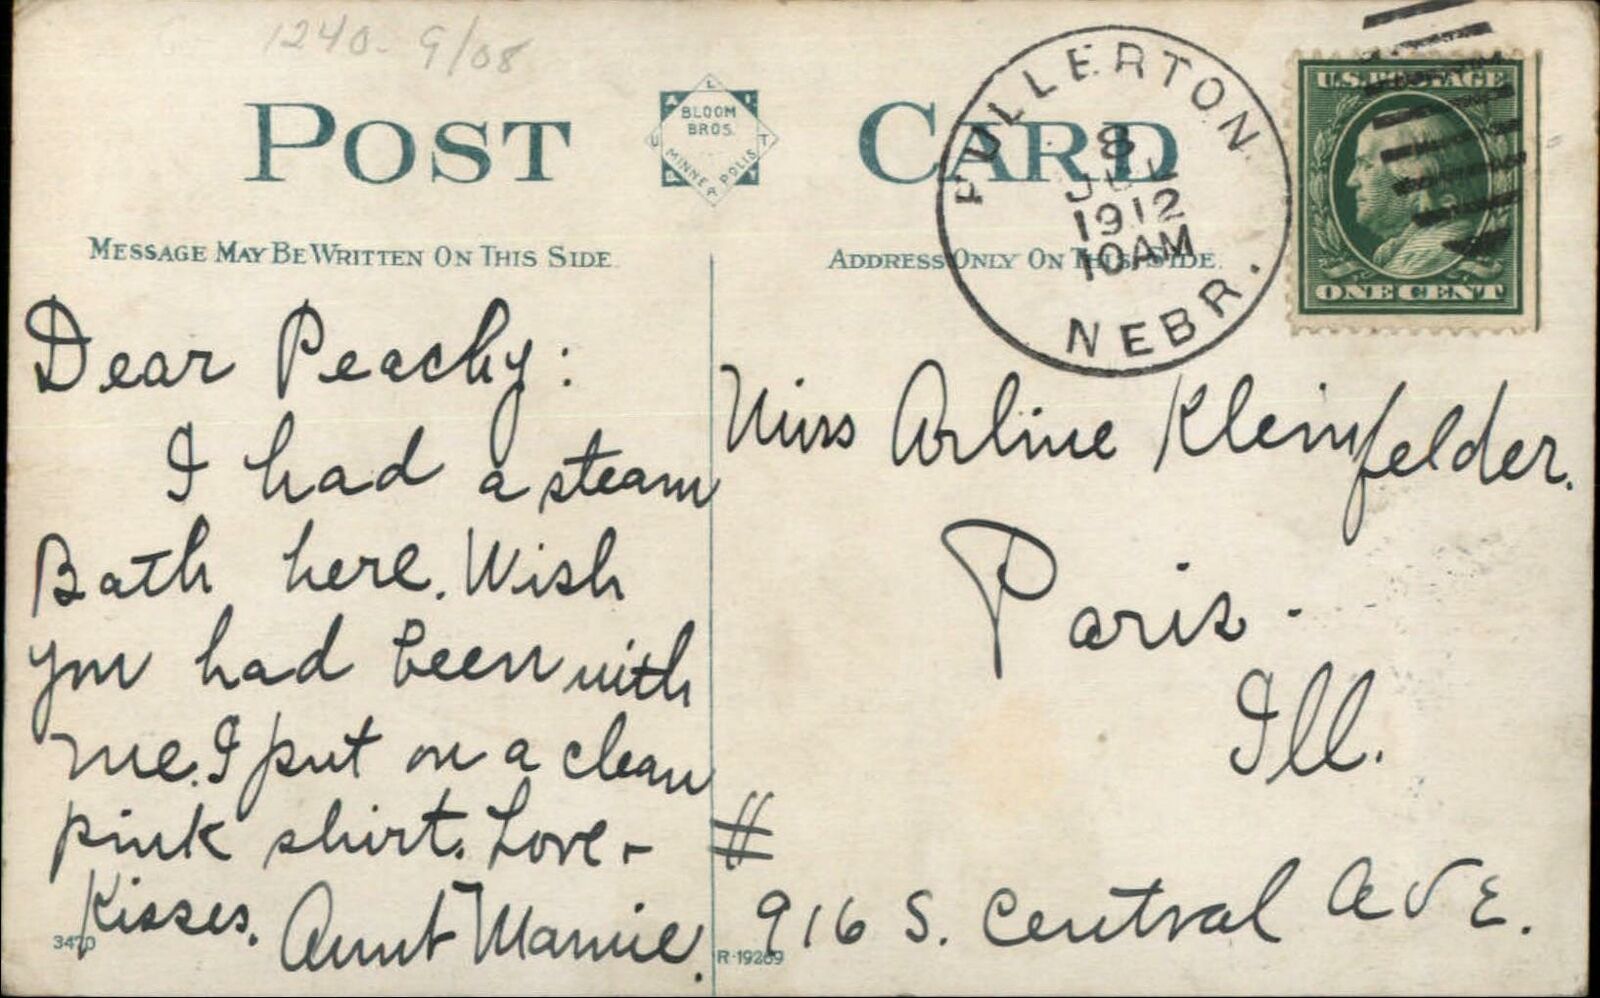 1240. 9/08
POST CARD
BLOOM
BROS.
MINNEAPOLIS
MESSAGE MAY BE WRITTEN ON THIS SIDE
ADDRESS ONLY ON THIS SIDE.
FULLERTON
8
JUL
1912
10AM
NEBR.
U.S. POSTAGE
ONE CENT
Dear Peachy:
I had a steam
Bath here. Wish
you had been with
me. I put on a clean
pink shirt. Love -
Kisses. Aunt Mamie.
Miss Arline Kleinfelder.
Paris -
Ill.
#
916 S. Central AVE.
3470
R-19269